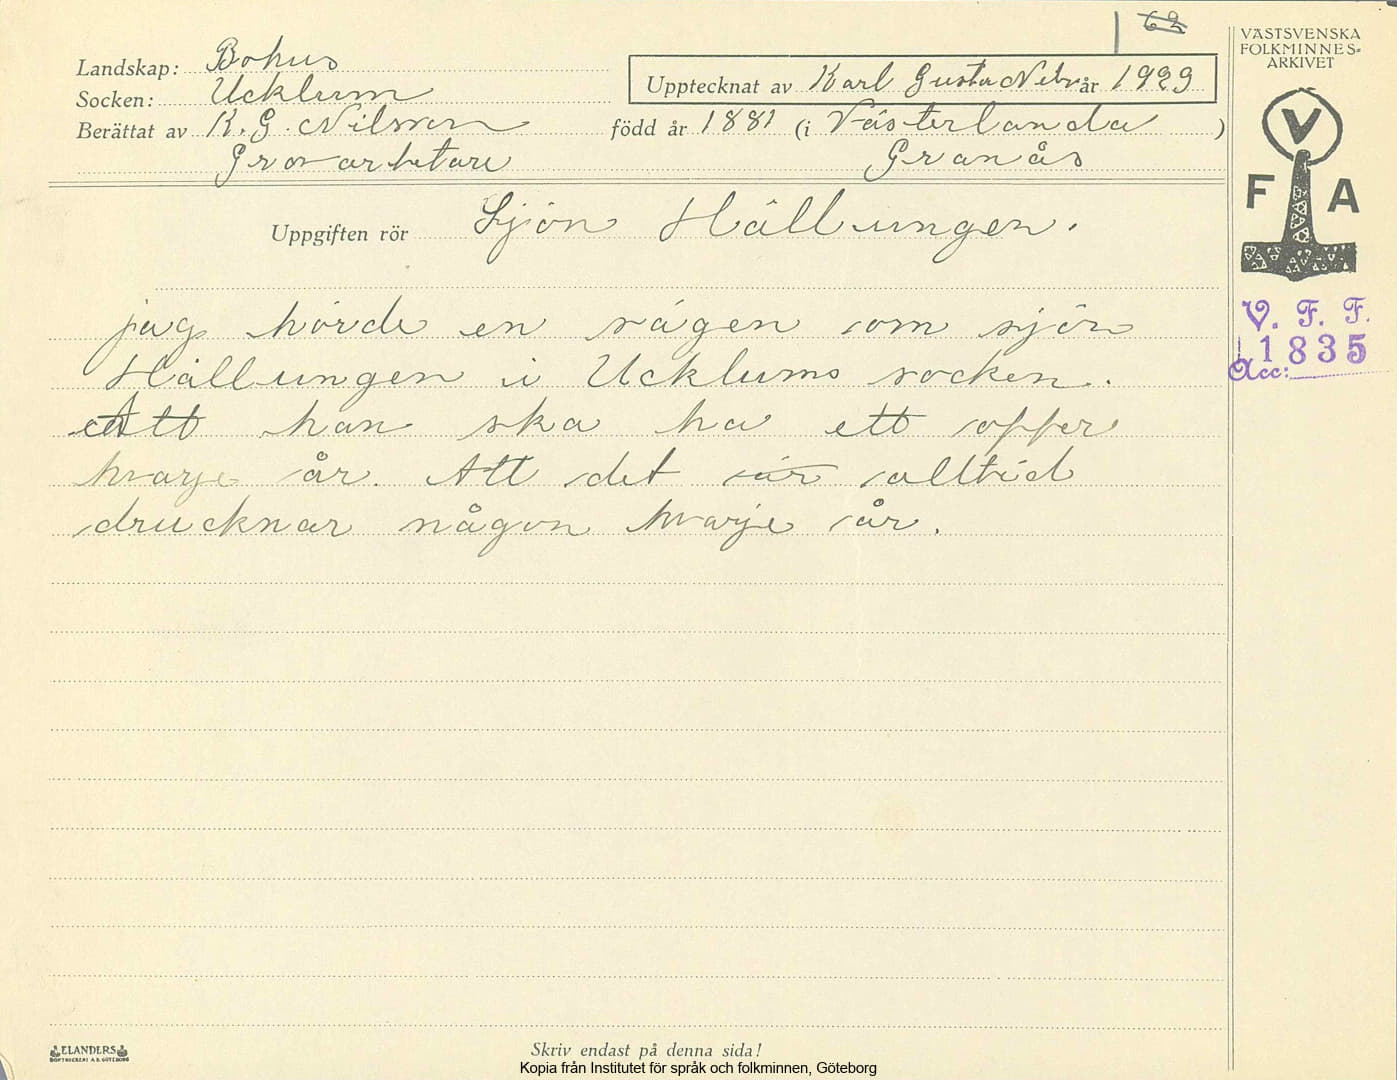 62
VÄSTSVENSKA
FOLKMINNES-
ARKIVET
Landskap: Bohus
Socken: Ucklum
Upptecknat av Karl Gustav Nilss år 1929
Berättat av K. G. Nilsson född år 1881 (i Västerlanda)
Grovarbetare Granås
V
F A
Uppgiften rör Sjön Hällungen.
V. F. F.
Acc: 1835
jag hörde en sägen om sjön
Hällungen i Ucklums socken.
Att han ska ha ett offer
hvarje år. Att det är alltid
drucknar någon hvarje år.
ELANDERS
BOKTRYCKERI A.B. GÖTEBORG
Skriv endast på denna sida!
Kopia från Institutet för språk och folkminnen, Göteborg